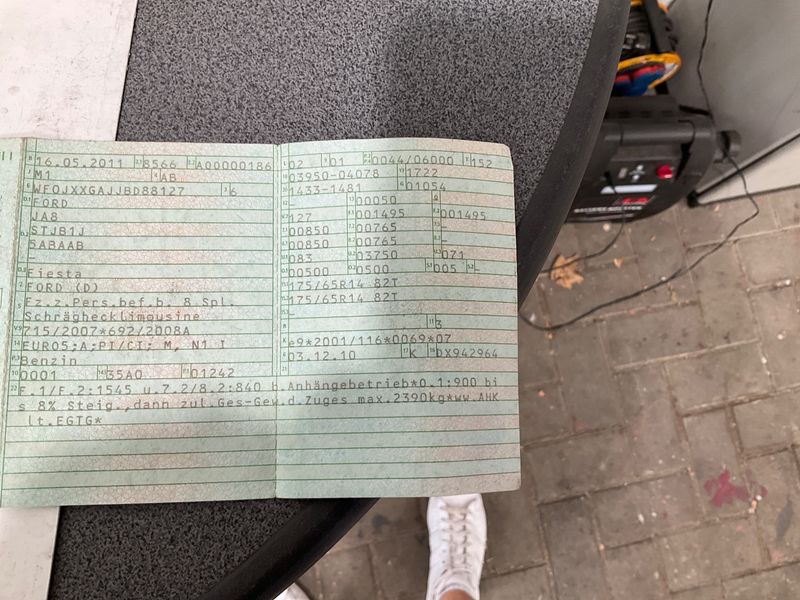 16.05.2011 8566 A00000186
M1 AB
WF0JXXGAJJBD88127 6
FORD
JA8
STJB1J
5ABAAB
–
Fiesta
FORD (D)
Fz.z.Pers.bef.b. 8 Spl.
Schräghecklimousine
715/2007*692/2008A
EURO5;A;PI/CI; M, N1 I
Benzin
0001 35A0 01242
02 01 0044/06000 152
03950-04078 1722
1433-1481 01054
00050
127 001495 001495
00850 00765 –
00850 00765 –
083 03750 071
00500 0500 005 –
175/65R14 82T
175/65R14 82T
–
3
e9*2001/116*0069*07
03.12.10 K DX942964
F.1/F.2:1545 u.7.2/8.2:840 b.Anhängebetrieb*O.1:900 bi
s 8% Steig.,dann zul.Ges-Gew.d.Zuges max.2390kg*ww.AHK
lt.EGTG*